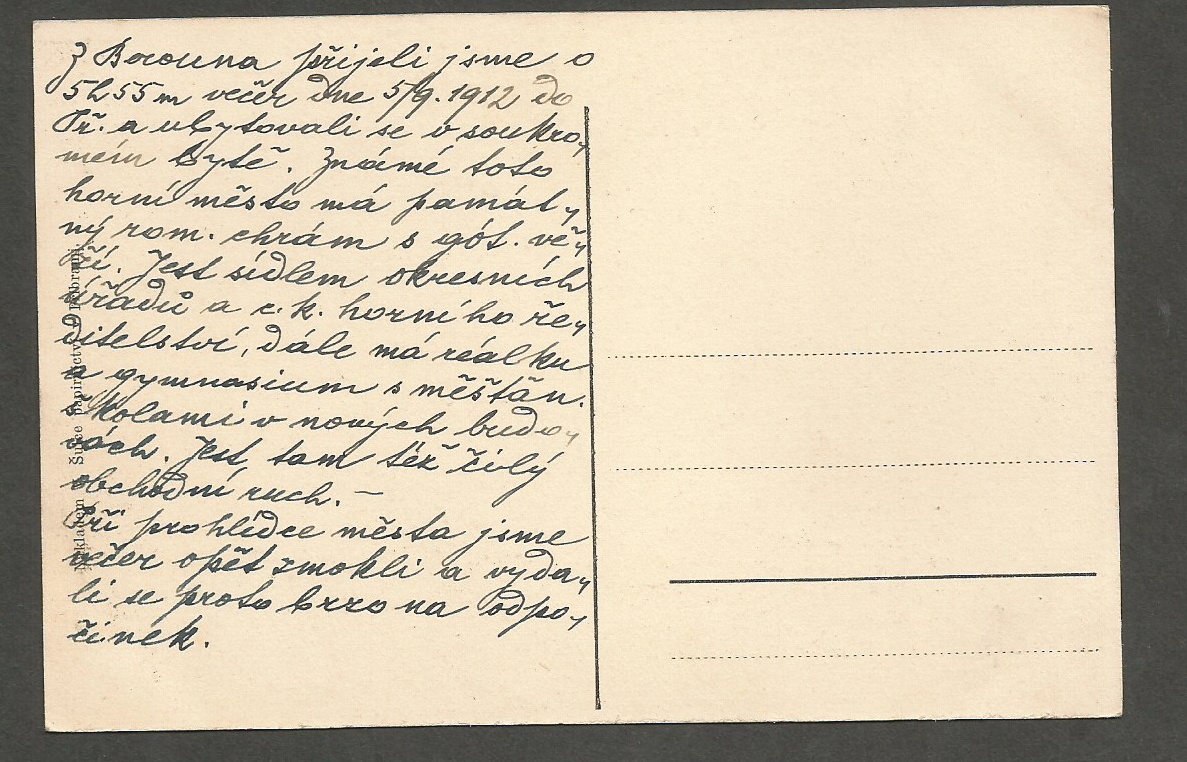 Z Berouna přijeli jsme o
5h55m večer dne 5/9.1912 do
Př. a ubytovali se v soukro-
mém bytě. Známé toto
horní město má památ-
ný rom. chrám s gót. vě-
ží. Jest sídlem okresních
úřadů a c. k. horního ře-
ditelství, dále má réalku
a gymnasium s měšťan.
školami v nových budo-
vách. Jest tam též čilý
obchodní ruch. –
Při prohlídce města jsme
večer opět zmokli a vyda-
li se proto brzo na odpo-
činek.
Nákladem Šulce papírnictví Příbrami.